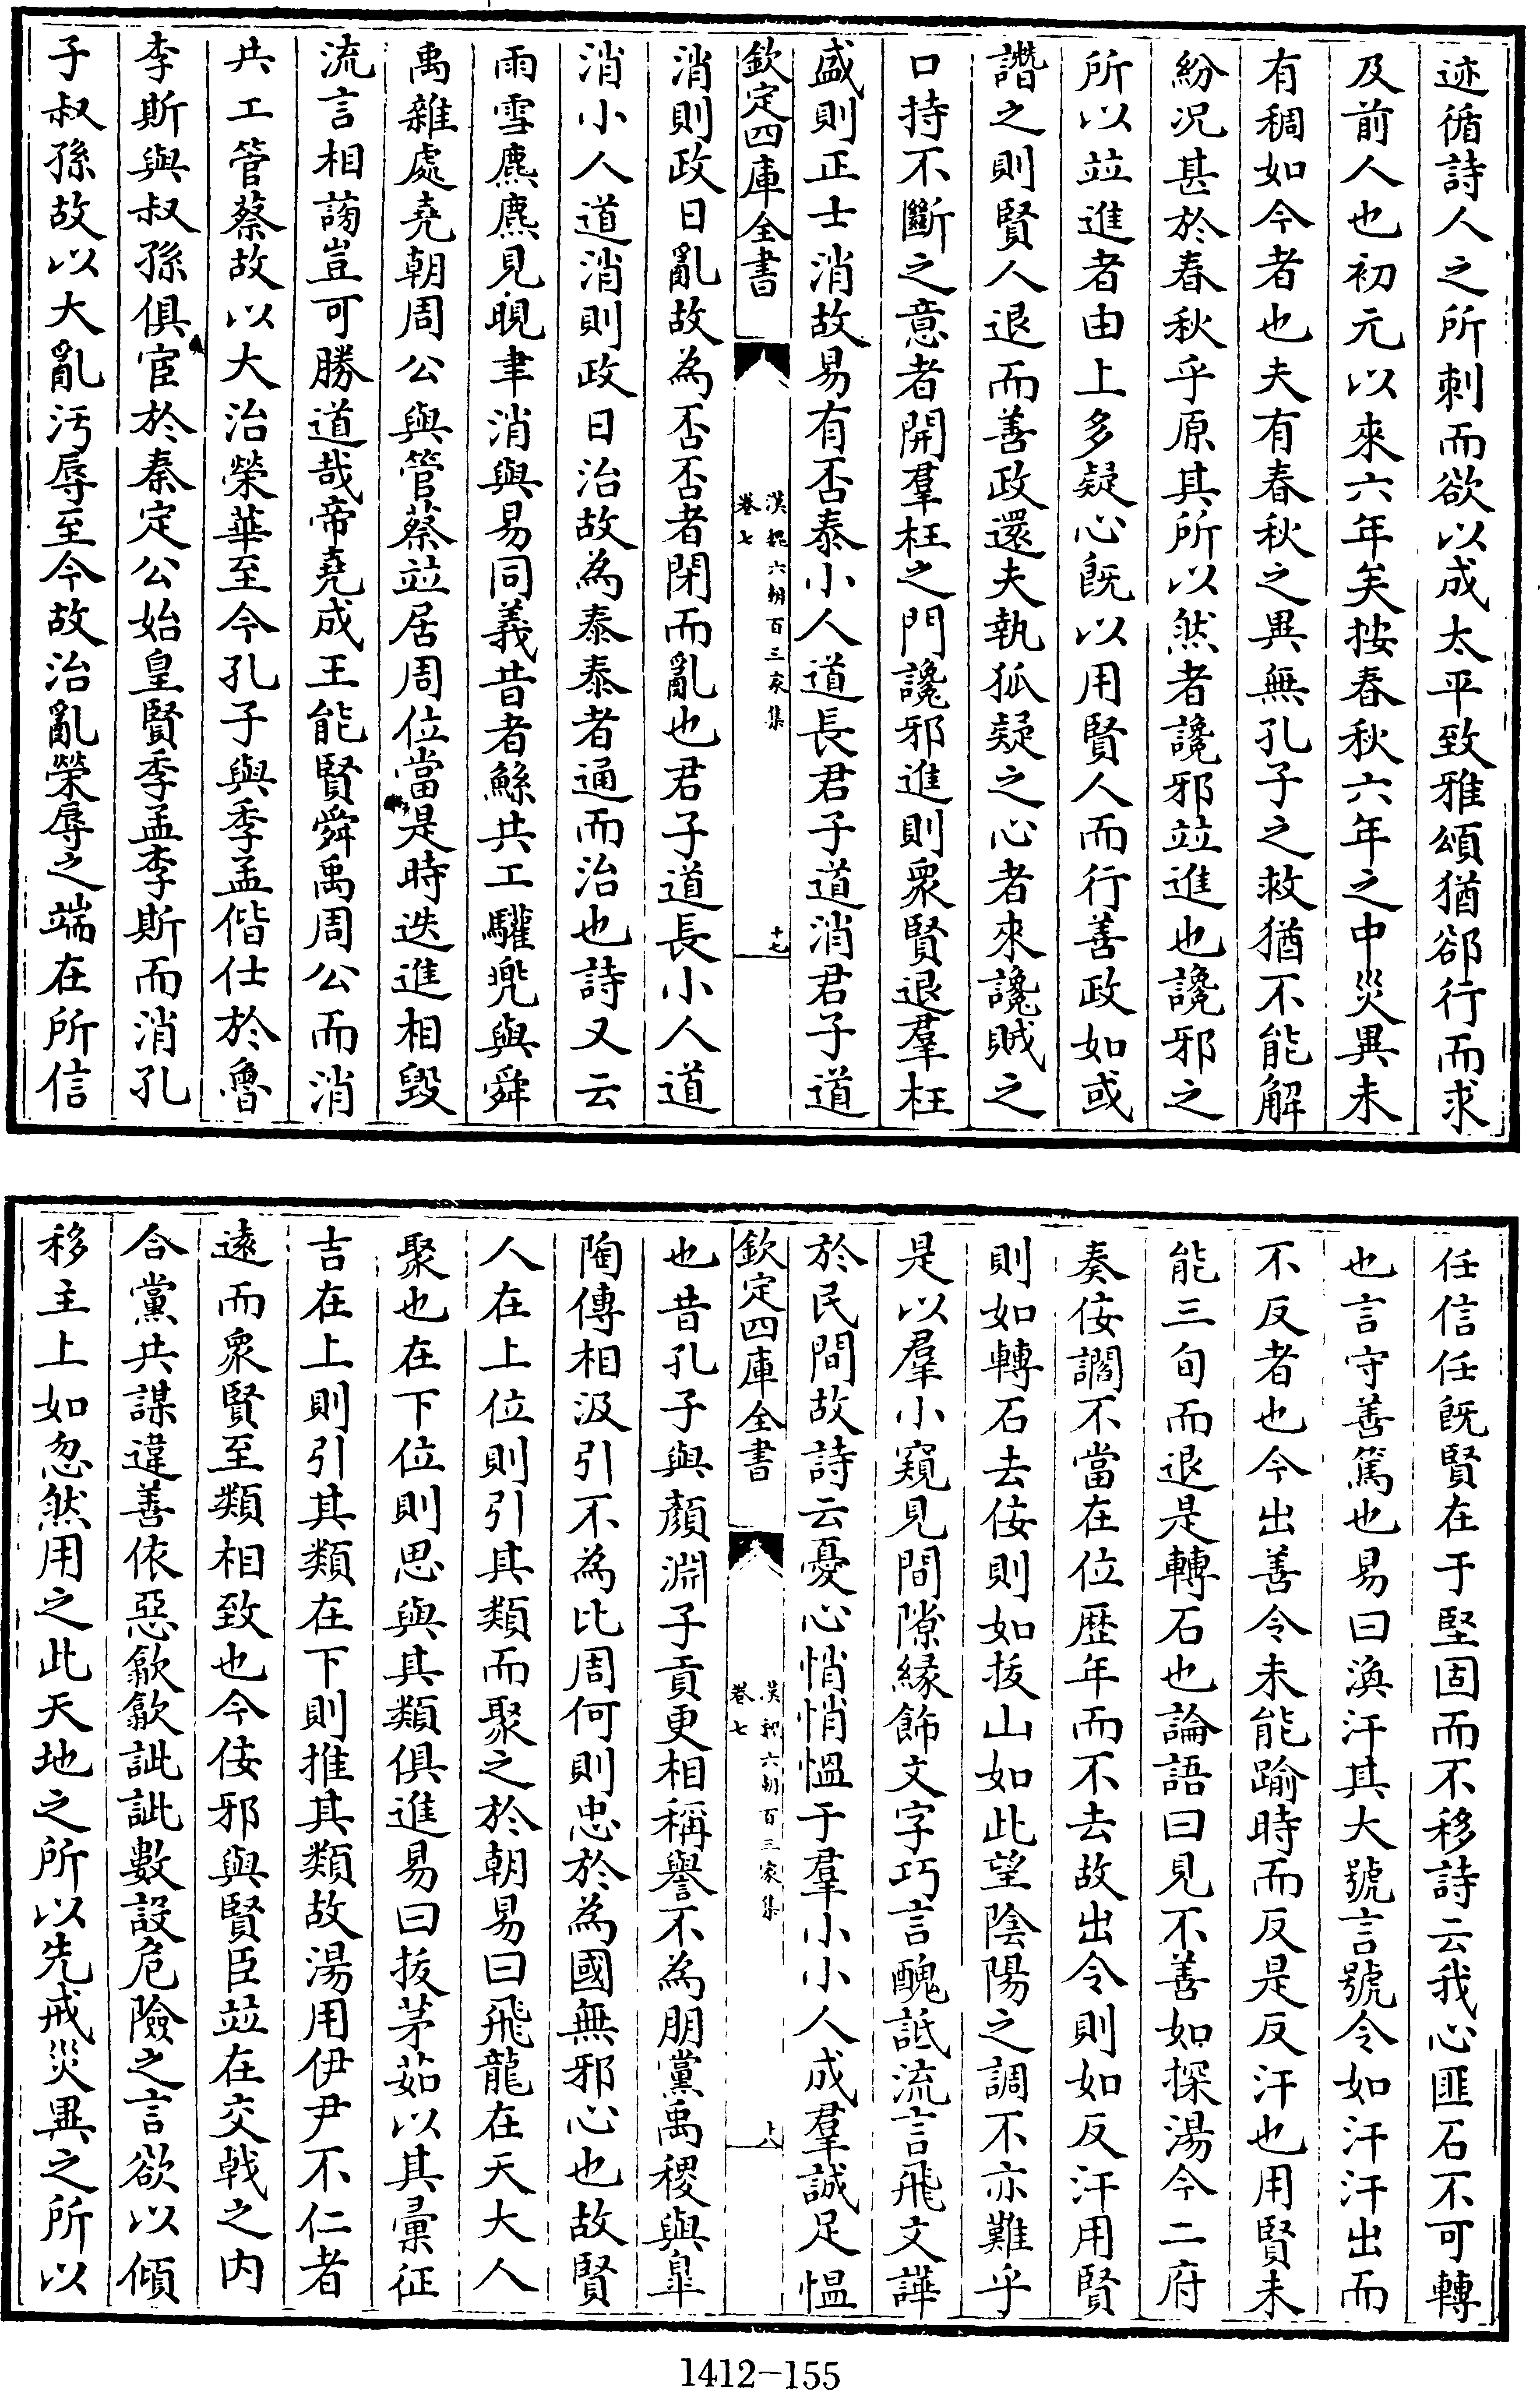 迹循詩人之所刺而欲以成太平致雅頌猶郤行而求
及前人也初元以來六年矣按春秋六年之中災異未
有稠如今者也夫有春秋之異無孔子之救猶不能解
紛况甚於春秋乎原其所以然者讒邪竝進也讒邪之
所以竝進者由上多疑心既以用賢人而行善政如或
譖之則賢人退而善政還夫執狐疑之心者來讒賊之
口持不斷之意者開羣枉之門讒邪進則衆賢退羣枉
盛則正士消故易有否泰小人道長君子道消君子道
欽定四庫全書
漢魏六朝百三家集
卷七
十七
消則政日亂故為否否者閉而亂也君子道長小人道
消小人道消則政日治故為泰泰者通而治也詩又云
雨雪麃麃見晛聿消與易同義昔者鯀共工驩兜與舜
禹雜處堯朝周公與管蔡竝居周位當是時迭進相毀
流言相謗豈可勝道哉帝堯成王能賢舜禹周公而消
共工管蔡故以大治榮華至今孔子與季孟偕仕於魯
李斯與叔孫俱宦於秦定公始皇賢季孟李斯而消孔
子叔孫故以大亂汚辱至今故治亂榮辱之端在所信
任信任既賢在于堅固而不移詩云我心匪石不可轉
也言守善篤也易曰渙汗其大號言號令如汗汗出而
不反者也今出善令未能踰時而反是反汗也用賢未
能三旬而退是轉石也論語曰見不善如探湯今二府
奏佞讇不當在位歴年而不去故出令則如反汗用賢
則如轉石去佞則如拔山如此望陰陽之調不亦難乎
是以羣小窺見間隙緣飾文字巧言醜詆流言飛文譁
於民間故詩云憂心悄悄愠于羣小小人成羣誠足愠
欽定四庫全書
漢魏六朝百三家集
卷七
十八
也昔孔子與顏淵子貢更相稱譽不為朋黨禹稷與臯
陶傳相汲引不為比周何則忠於為國無邪心也故賢
人在上位則引其類而聚之於朝易曰飛龍在天大人
聚也在下位則思與其類俱進易曰拔茅茹以其彙征
吉在上則引其類在下則推其類故湯用伊尹不仁者
遠而衆賢至類相致也今佞邪與賢臣竝在交戟之内
合黨共謀違善依惡歙歙訿訿數設危險之言欲以傾
移主上如忽然用之此天地之所以先戒災異之所以
1412-155